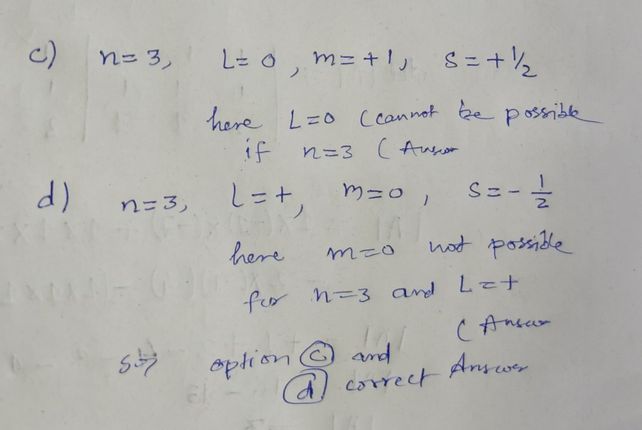 c) n=3, L=0, m=+1, s=+1/2
here L=0 (cannot be possible
if n=3 (Answer
d) n=3, L=+, m=0, s=-1/2
here m=0 not possible
for n=3 and L=+
(Answer
So, option (c) and
(d) correct Answer